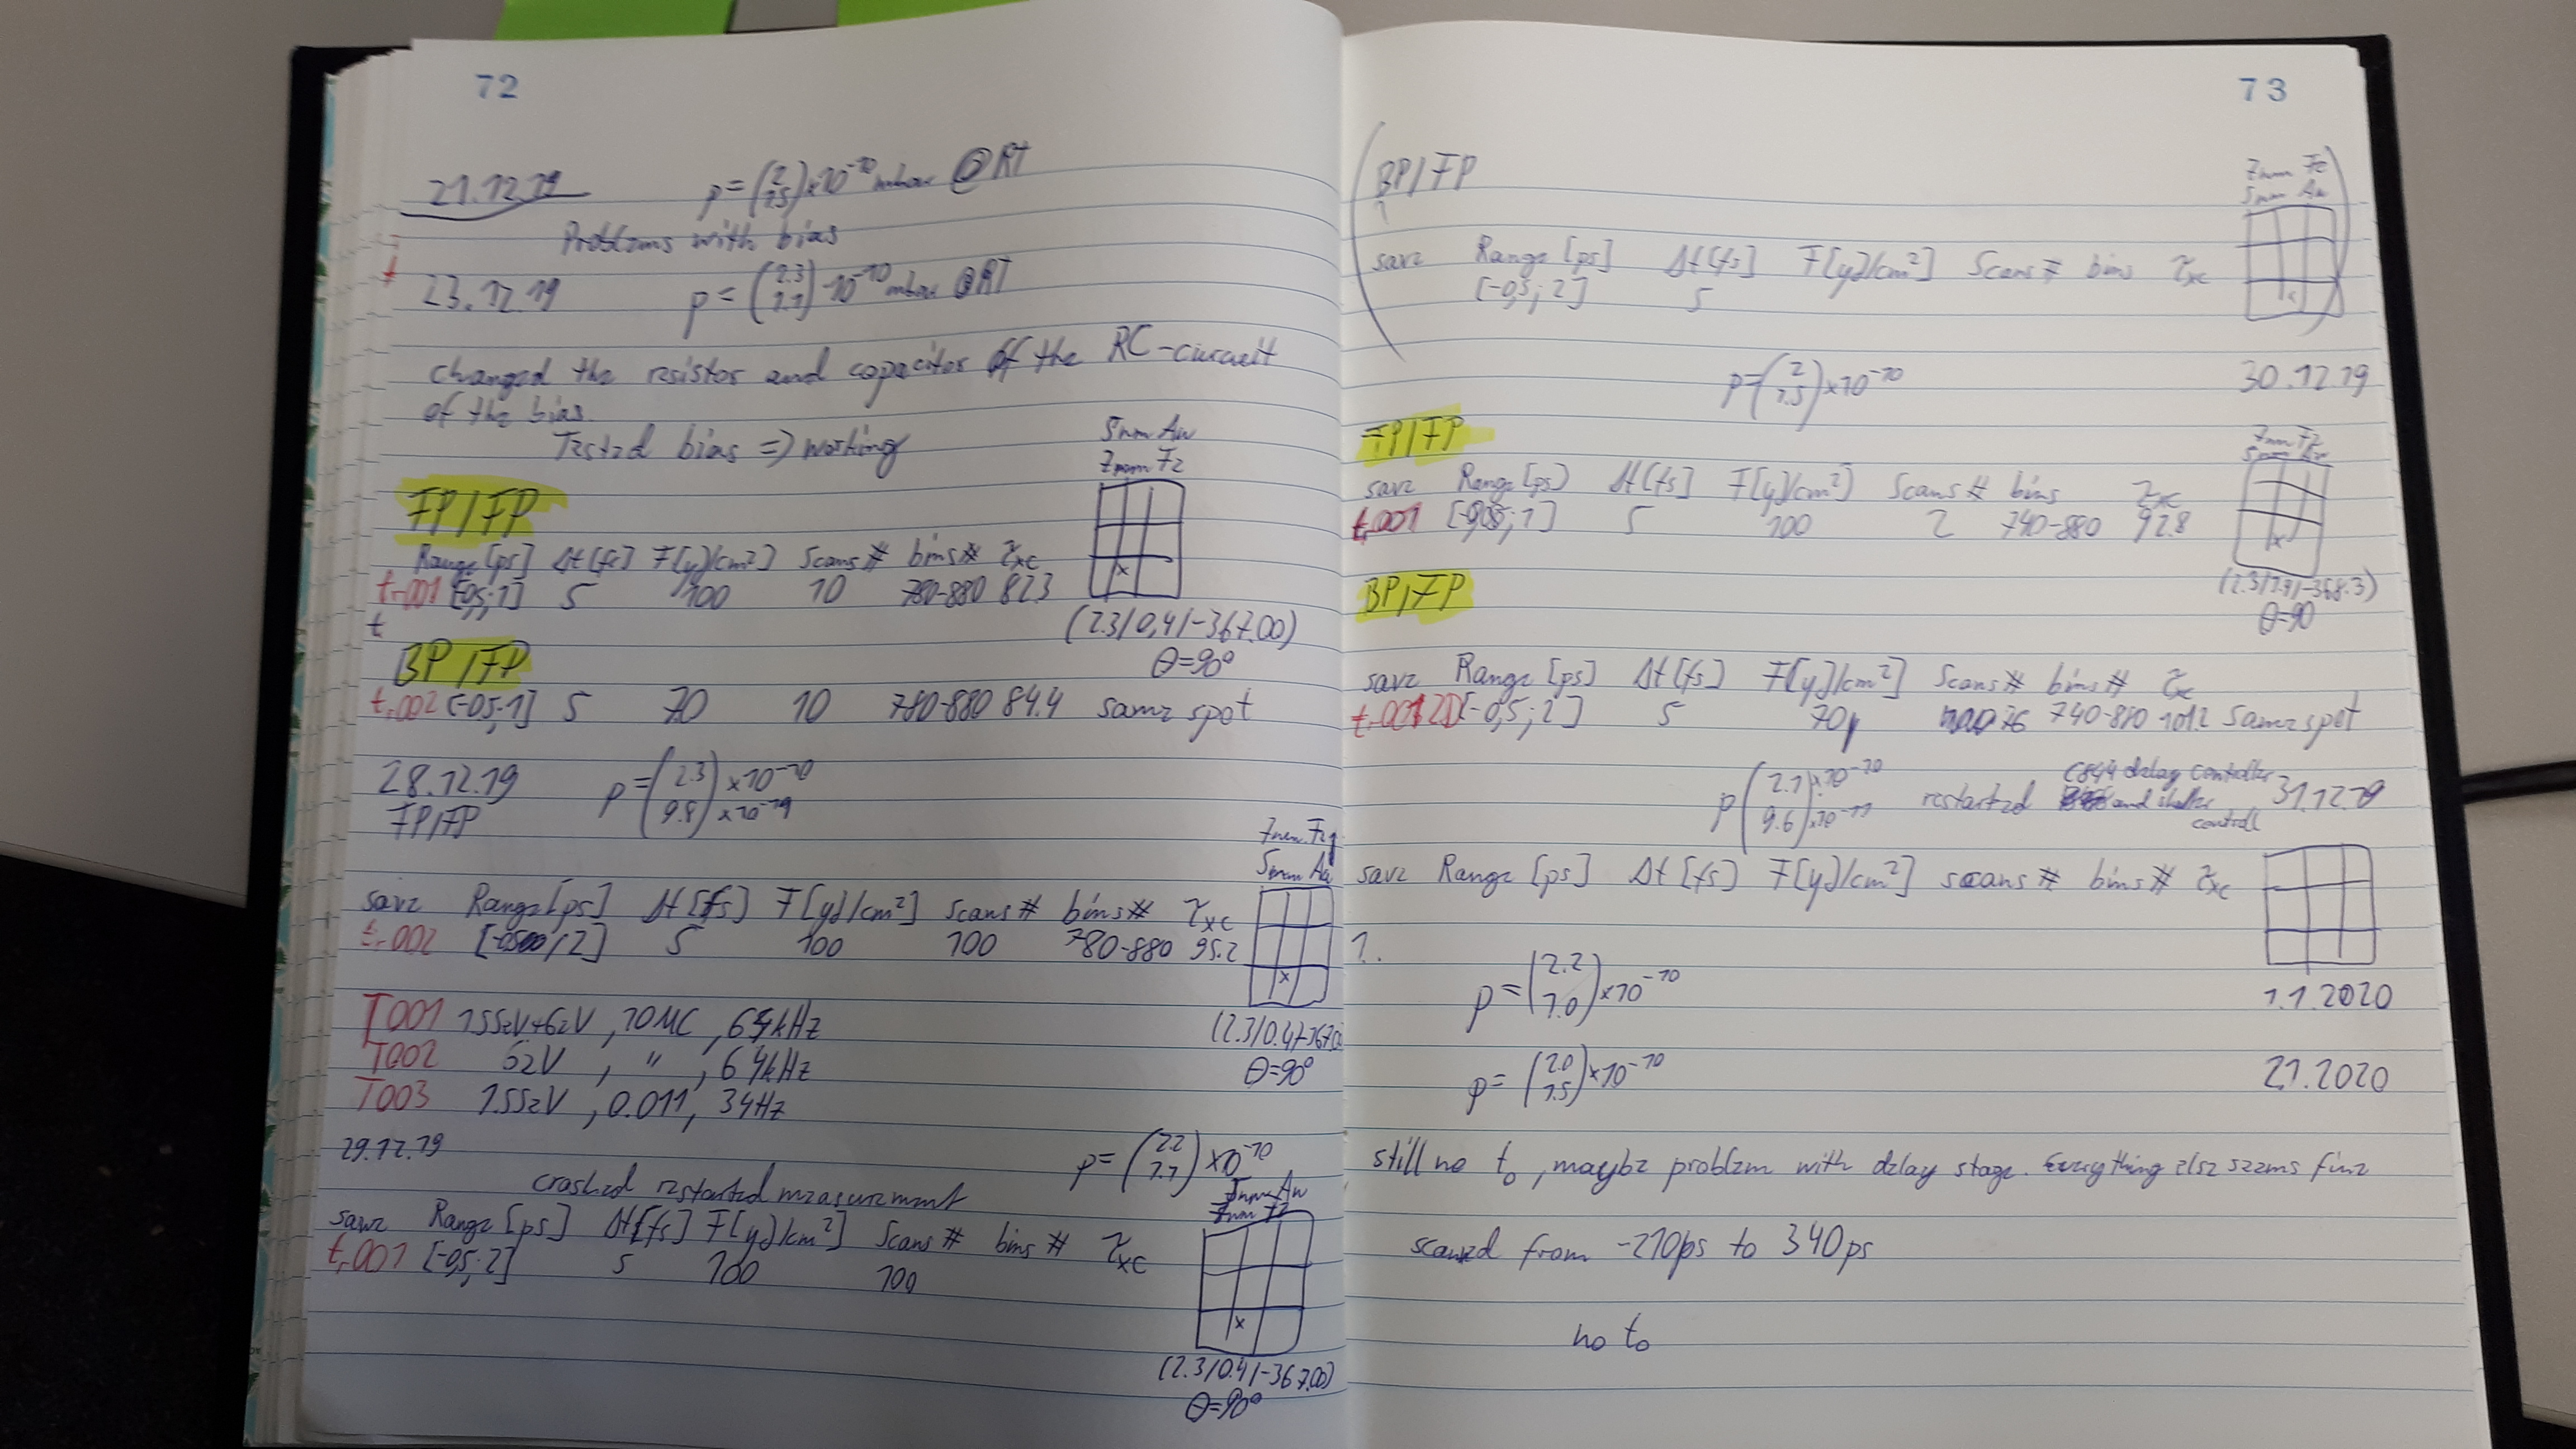 72
21.12.19 p=(2 / 1.5)×10⁻¹⁰ mbar @RT
Problems with bias
23.12.19 p=(2.3 / 1.1)·10⁻¹⁰ mbar @RT
changed the resistor and capacitor of the RC-circuit
of the bias.
Tested bias => working
5nm Au
7nm Fe
FP/FP
Range [ps] Δt[fs] F[µJ/cm²] Scans # bins # τxc
t.001 [-0,5;1] 5 100 10 780-880 82.3
x
t
(2.3/0,4/-367.00)
θ=90°
BP/FP
t.002 [-0,5;1] 5 70 10 780-880 84.4 same spot
28.12.19 p=(2.3 / 9.8) ×10⁻¹⁰ ×10⁻¹¹
FP/FP
7nm Fe
5nm Au
save Range [ps] Δt [fs] F[µJ/cm²] Scans # bins # τxc
t.002 [-0500/2] 5 100 100 780-880 95.2
x
(2.3/0.4/-367.0
θ=90°
T001 1.55eV+6eV, 10MC, 64kHz
T002 6eV, ", 64kHz
T003 1.55eV, 0.011, 34Hz
29.12.19 p=(2.2 / 1.1) ×10⁻¹⁰
crashed restarted measurement
5nm Au
7nm Fe
save Range [ps] Δt[fs] F[µJ/cm²] Scans # bins # τxc
t.001 [-0,5;2] 5 100 100
x
(2.3/0.4/-367.00)
θ=90°
73
BP/FP
7nm Fe
5nm Au
save Range [ps] Δt[fs] F[µJ/cm²] Scans # bins τxc
[-0,5;2] 5
p=(2 / 1.5)×10⁻¹⁰ 30.12.19
FP/FP
7nm Fe
save Range [ps] Δt[fs] F[µJ/cm²] Scans # bins τxc
t.001 5 100 2 740-880 92.8
x
(2.3/1.91/-368.3)
θ=90
BP/FP
save Range [ps] Δt [fs] F[µJ/cm²] Scans # bins # τxc
[-0,5;2] 5 70 76 740-880 101.2 same spot
p(2.1×10⁻¹⁰ / 9.6×10⁻¹¹) restarted C844 delay controller and shutter controll 31.12.19
save Range [ps] Δt [fs] F[µJ/cm²] scans # bins # τxc
1.
p=(2.2 / 1.0)×10⁻¹⁰ 1.1.2020
p=(2.0 / 1.5)×10⁻¹⁰ 2.1.2020
still no t₀, maybe problem with delay stage. Everything else seems fine
scaned from -210ps to 340ps
no t₀